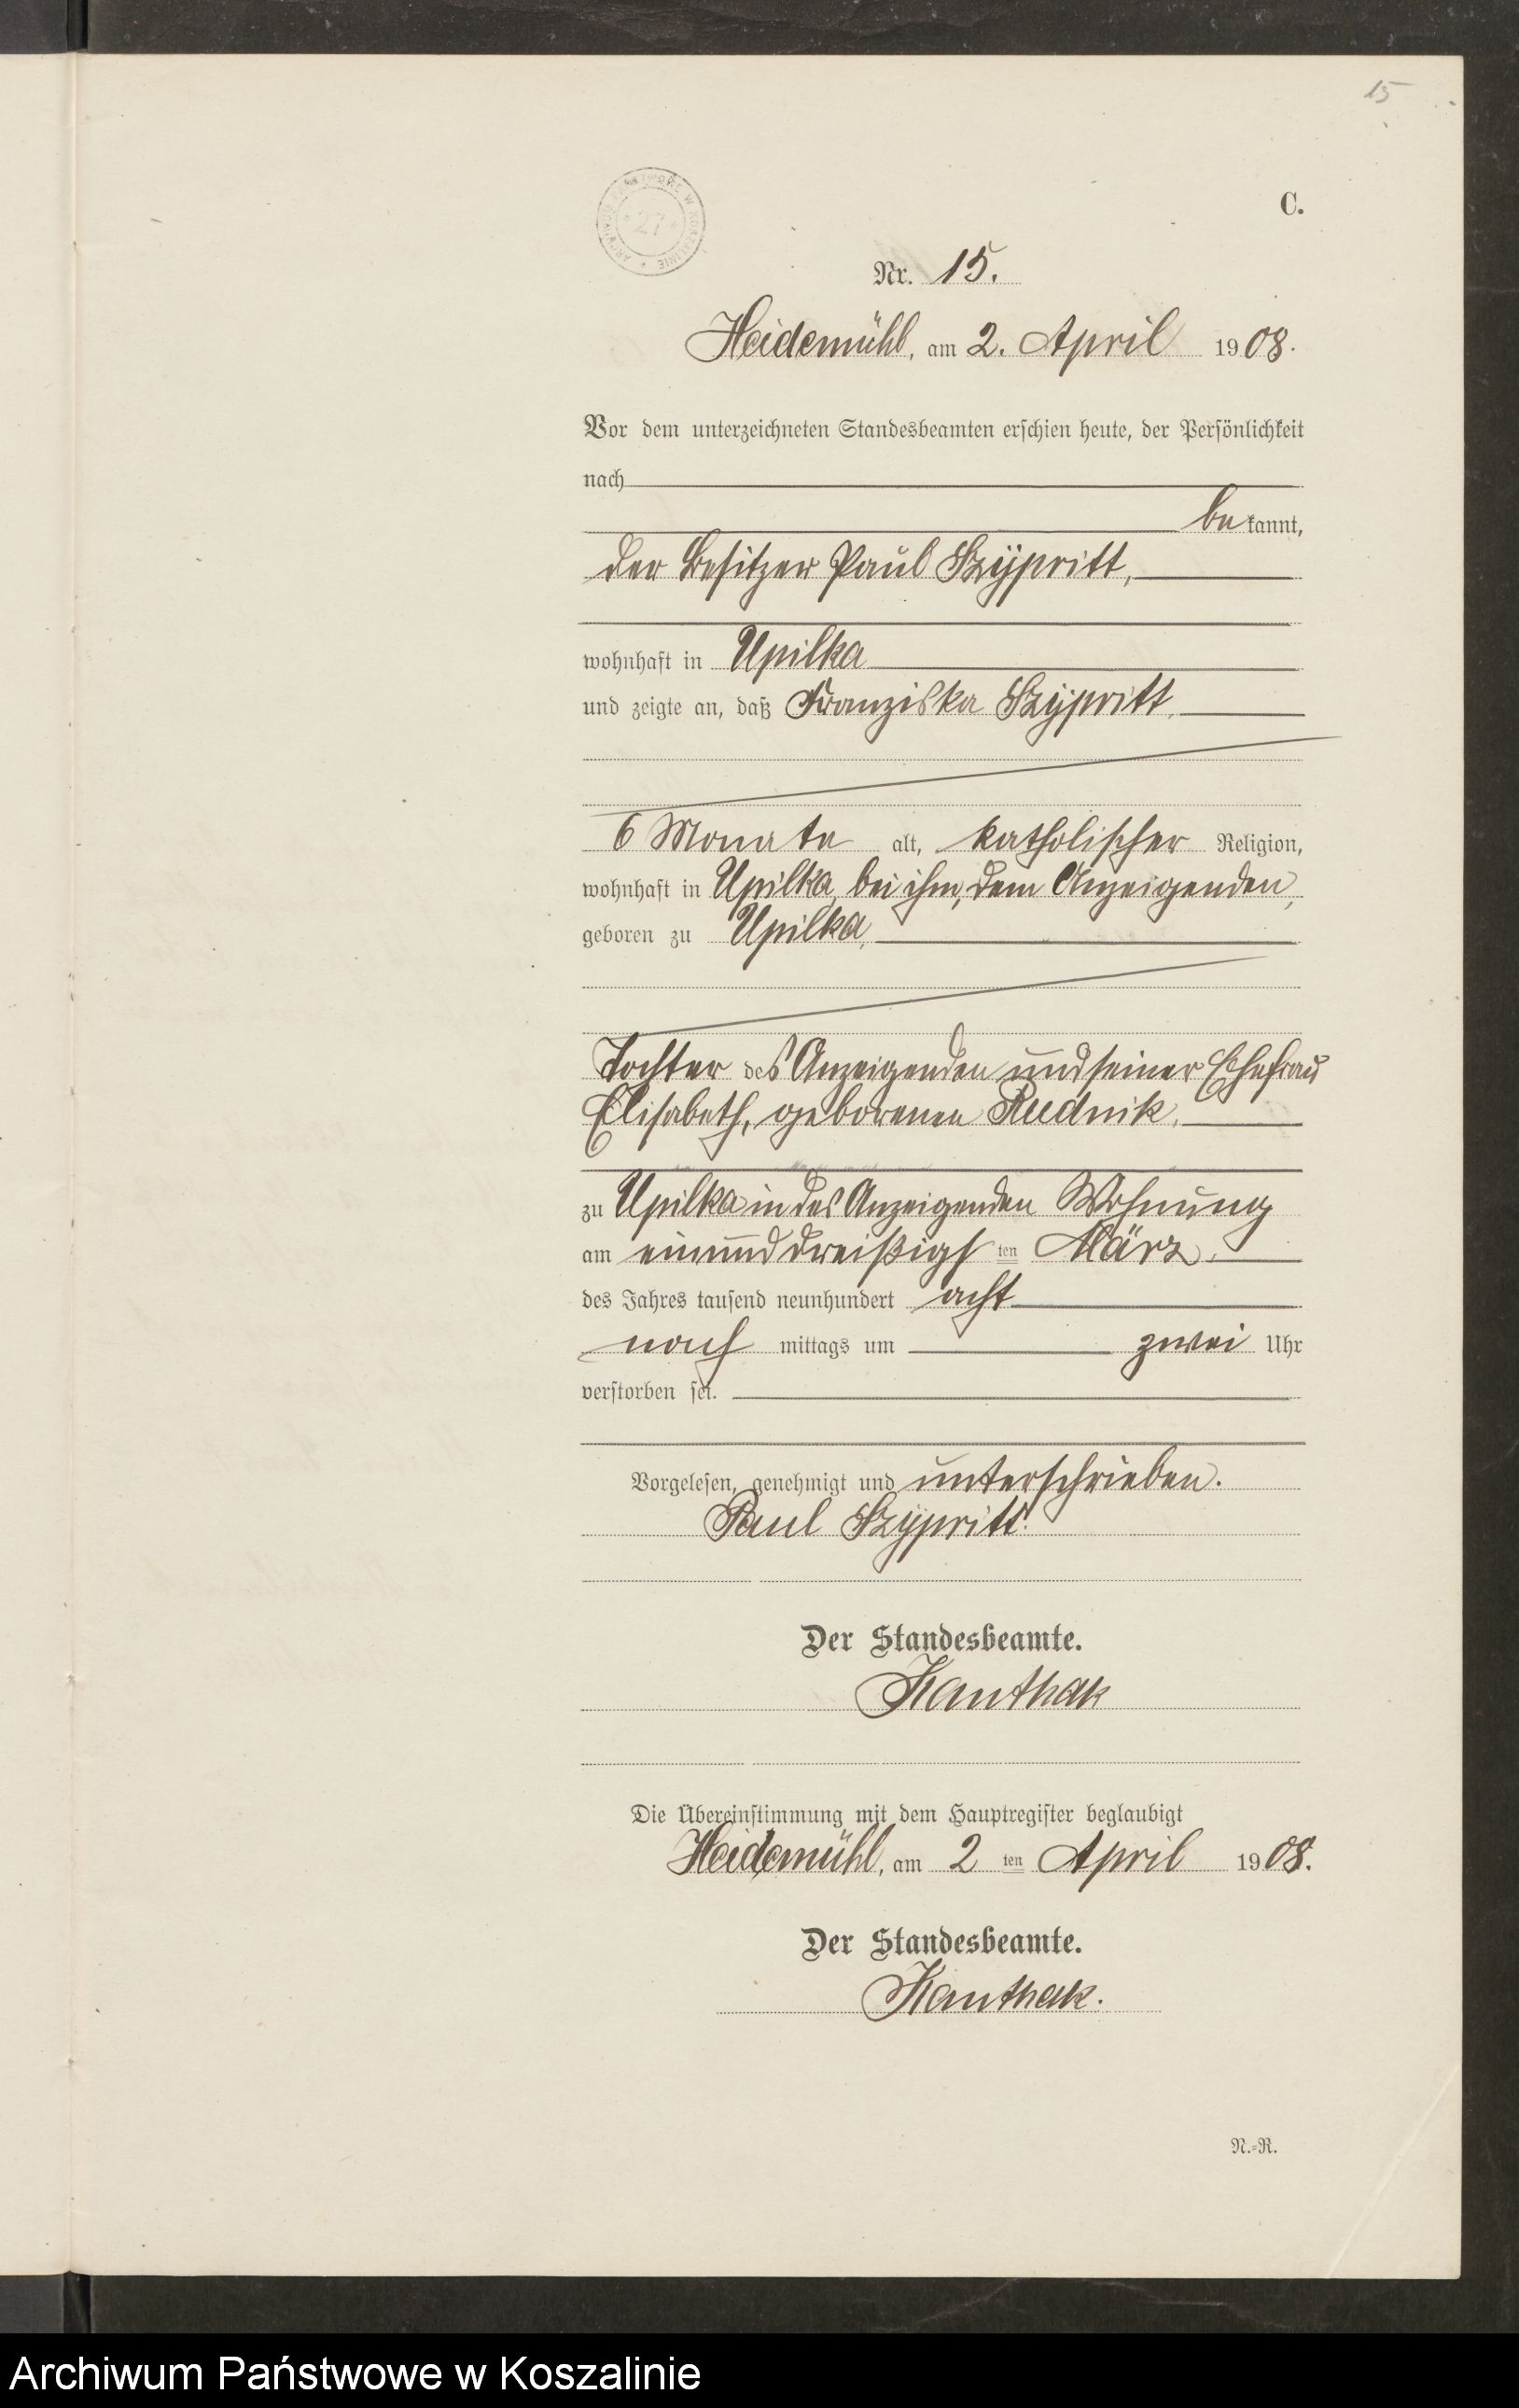 15
C.
ARCHIWUM PAŃSTWOWE W KOSZALINIE * 27 *
Nr. 15.
Heidemühl, am 2. April 1908.
Vor dem unterzeichneten Standesbeamten erschien heute, der Persönlichkeit
nach
bekannt,
der Besitzer Paul Szÿpritt,
wohnhaft in Upilka
und zeigte an, daß Franziska Szÿpritt,
6 Monate alt, katholischer Religion,
wohnhaft in Upilka, bei ihm, dem Anzeigenden,
geboren zu Upilka,
Tochter des Anzeigenden und seiner Ehefrau
Elisabeth, geborenen Rudnik,
zu Upilka in des Anzeigenden Wohnung
am einunddreißigsten März,
des Jahres tausend neunhundert acht
nachmittags um zwei Uhr
verstorben sei.
Vorgelesen, genehmigt und unterschrieben.
Paul Szÿpritt.
Der Standesbeamte.
Kanthak
Die Übereinstimmung mit dem Hauptregister beglaubigt
Heidemühl, am 2ten April 1908.
Der Standesbeamte.
Kanthak.
N.=R.
Archiwum Państwowe w Koszalinie